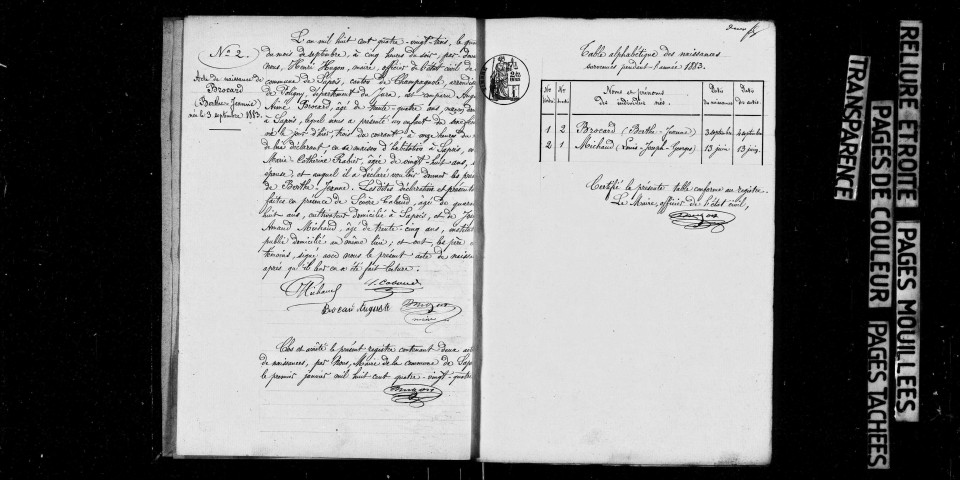 N° 2.
Acte de naissance de
Brocard
(Berthe-Jeanne)
née le 3 septembre 1883.
L'an mil huit cent quatre-vingt-trois, le
du mois de septembre, à cinq heures du soir, par-
nous, Henri Hugon, maire, officier de l'état civil de
commune de Sapois, canton de Champagnole,
de Poligny, département du Jura, est comparu
Aimé Brocard, âgé de trente-quatre ans
à Sapois, lequel nous a présenté un enfant du sexe
né le jour d'hier, trois du courant, à onze heures du
de lui déclarant, en sa maison d'habitation à Sapois,
Marie-Catherine âgée de vingt-huit ans,
épouse, et auquel il a déclaré vouloir donner les
de Berthe-Jeanne. Lesdites déclaration et
faites en présence de âgé de
huit ans, cultivateur domicilié à Sapois, et de
Amand Michaud, âgé de trente-cinq ans,
public domicilié au même lieu; et ont, les père
témoins, signé avec nous le présent acte de
après qu'il leur en a été fait lecture.
Michaud
Brocard Auguste
maire
Clos et arrêté le présent registre contenant deux
de naissances, par Nous, Maire de la commune de
le premier janvier mil huit cent quatre-vingt-quatre
Table alphabétique des naissances
survenues pendant l'année 1883.
Noms et prénoms
des individus nés.
1 2 Brocard (Berthe-Jeanne) 3 septembre 4 septembre
2 1 Michaud (Louis-Joseph-Georges) 13 juin 13 juin
Certifié la présente table conforme au registre.
Le Maire, officier de l'état civil,
RELIURE ETROITE PAGES MOUILLEES
PAGES DE COULEUR PAGES TACHEES
TRANSPARENCE